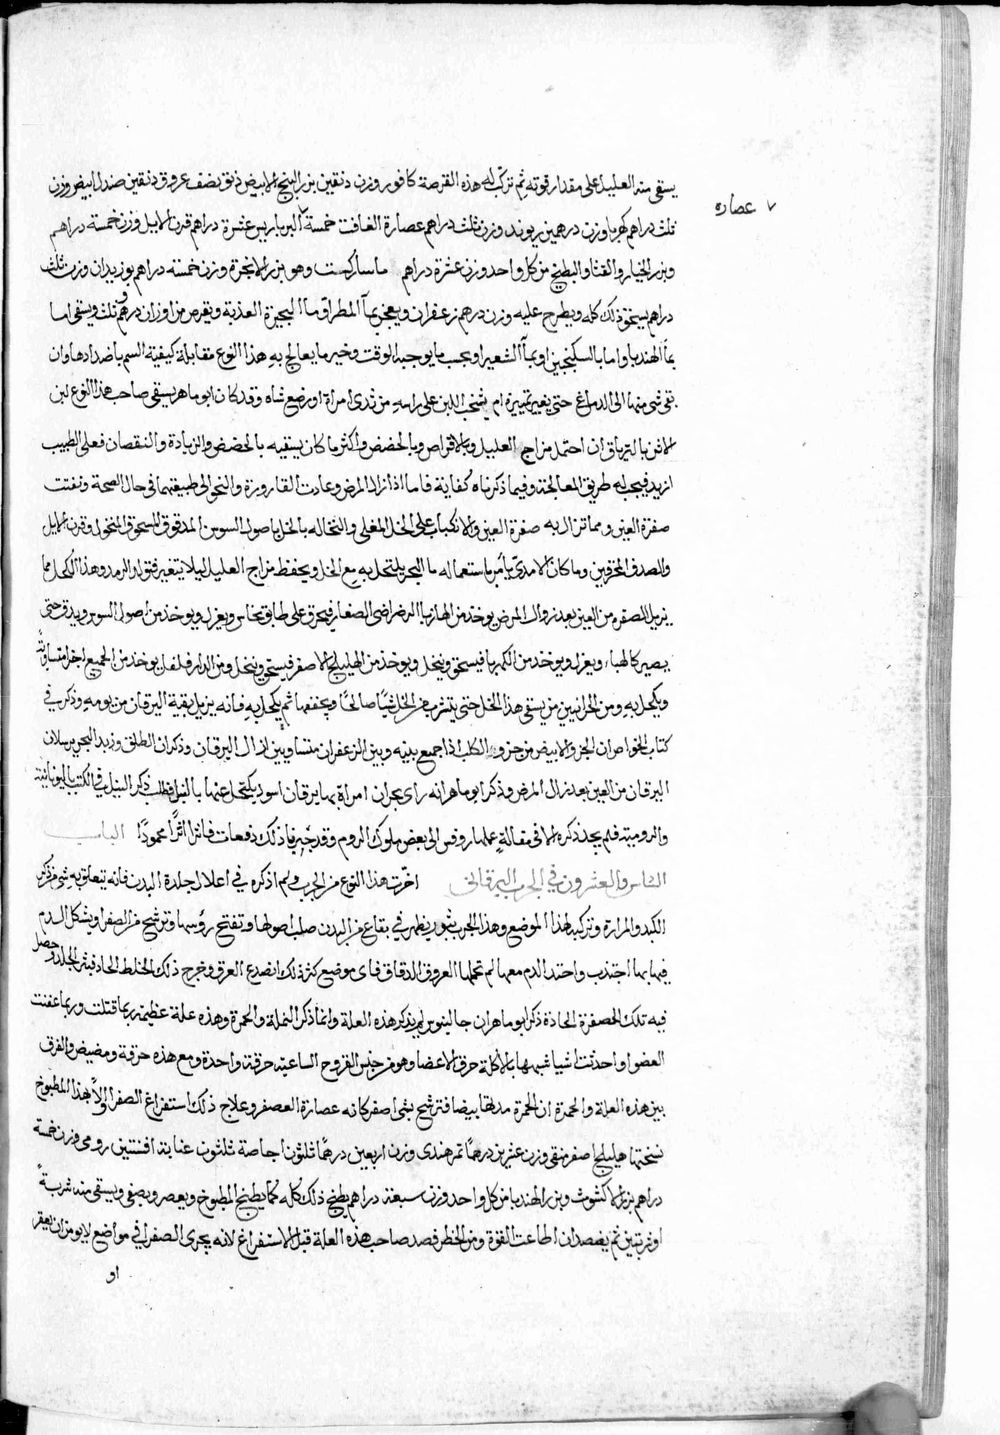 يسقى منه العليل على مقدار قوته ثم تركب له هذه القرصة كافور وزن دنقين بزر البنج الابيض دنق ونصف عروق دنقين صندل ابيض وزن
٧ عصاره
ثلث دراهم كهربا وزن درهمين ريوند وزن ثلث دراهم عصارة الغافت خمسة اكبرباريس عشرة دراهم قرن الايل وزن خمسة دراهم
وبزر الخيار والقثا والبطيخ من كل واحد وزن عشرة دراهم وهو بزر الانجرة وزن خمسة دراهم بوزيدان وزن ثلث
دراهم يسحق ذلك كله ويطرح عليه وزن درهم زعفران ويعجن بماء المطر او ماء البحيرة العذبة ويقرص من اوزان درهم وثلث ويسقى اما
بماء الهندبا واما بالسكنجبين او بماء الشعير او بحسب ما يوجبه الوقت وخير ما يعالج به هذا النوع مقابلة كيفية السم باضدادها وان
بقى شى منها الى الدماغ حتى يغير تمييزه ام بشخب اللبن على راسه من ثدى امراة او رضع شاه وقد كان ابو ماهر يسقى صاحب هذا النوع لبن
الاتن بالترياق ان احتمل مزاج العليل وبالاقراص وبالحضض واكثر ما كان يسقيه بالحضض والزيادة والنقصان فعلى الطبيب
ازيد فيجب له طريق المعالجة وفيما ذكرناه كفاية فاما اذا زال المرض وعادت القارورة والنجو الى طبيعتهما فى حال الصحة وبقيت
صفرة العين ومما تزال به صفرة العين والانكباب على الخل المغلى والنخاله بالخل باصول السوسن المدقوق المسحوق المنخول وقرن الايل
والصدف المحرقين وما كان الامدى يامر باستعماله ما البحر يكتحل به مع الخل ويحفظ مزاج العليل ليلا يتغير فتولد الرمد وهذا الكحل مما
يزيل الصفره من العين بعد زوال المرض يوخذ من الهازبا الرضراضى الصغار فيحرق على طابق نحاس ويعزل ويوخذ من اصول السوس ويدق حتى
يصير كالهباء ويعزل ويوخذ من الكهربا فيسحق وينخل ويوخذ من الهليلج الاصفر فيسحق وينخل ومن الدار فلفل يوخذ من الجميع اجزا متساوية
ويكحل به ومن الحرانيين من يسقى هذا الخل حتى يتشرب من الخل شيا صالحا ويجففها ثم يكحل به فانه يزيل بقية اليرقان من يومه وذكر فى
كتاب الخواص ان الجزو الابيض من جزو الكلب اذا جمع بينه وبين الزعفران متساويين ازال اليرقان وذكر ان الطلق وزبد البحر يزيلان
اليرقان من العين بعد زال المرض وذكر ابو ماهر انه راى بجران امراة بها يرقان اسود يكتحل عنها بالنيل فطلب ذكر النيل فى الكتب اليونانية
والرومية فلم يجد ذكره الا فى مقالة عملها روفس الى بعض ملوك الروم وقد جرب ذلك دفعات فاثر اثرا محمودا الباب
الثامن والعشرون فى الجرب اليرقانى اخرت هذا النوع من الجرب ولم اذكره فى اعلال جلدة البدن فانه يتعلق به شى من ذكر
الكبد والمرارة وتركيب لهذا الموضع وهذا الجرب بثور يظهر فى بقاع من البدن صلب اصولها وتفتح رؤسها وترشح من الصفرا ويشكل الدم
فيها بما اجتذب واحتد الدم معها لم تحملها العروق الدقاق فاى موضع كثر ذلك انصدع العرق وخرج ذلك الخلط الحاد فبثر الجلد وحصل
فيه تلك الصفرة الحادة ذكر ابو ماهر ان جالينوس لم يذكر هذه العلة وانما ذكر النملة والحمرة وهذه علة عظيمة ربما قتلت وربما عفنت
العضو او احدثت اشيا شبهها بالاكلة حرق الاعضا وهو من جنس القروح الساعية حرقة واحدة ومع هذه حرقة ومضيض والفرق
بين هذه العلة والحمرة ان الحمرة مدتها بيضا فترشح بشى اصفر كانه عصارة العصفر وعلاج ذلك استفراغ الصفرا اولا بهذا المطبوخ
نسختها هليلج اصفر منقى وزن عشرين درهما تمر هندى وزن اربعين درهما ثلثون اجاصة ثلثون عنابة افسنتين رومى وزن خمسة
دراهم بزر الاكشوث وبزر الهندبا من كل واحد وزن سبعة دراهم يطبخ ذلك كله كما يطبخ المطبوخ ويعصر ويصفى ويسقى منه شربة
او شربتين ثم يفصد ان اطاعت القوة ومن الخطر فصد صاحب هذه العلة قبل الاستفراغ لانه يجرى الصفرا فى مواضع لا يومن ان يعقر
او